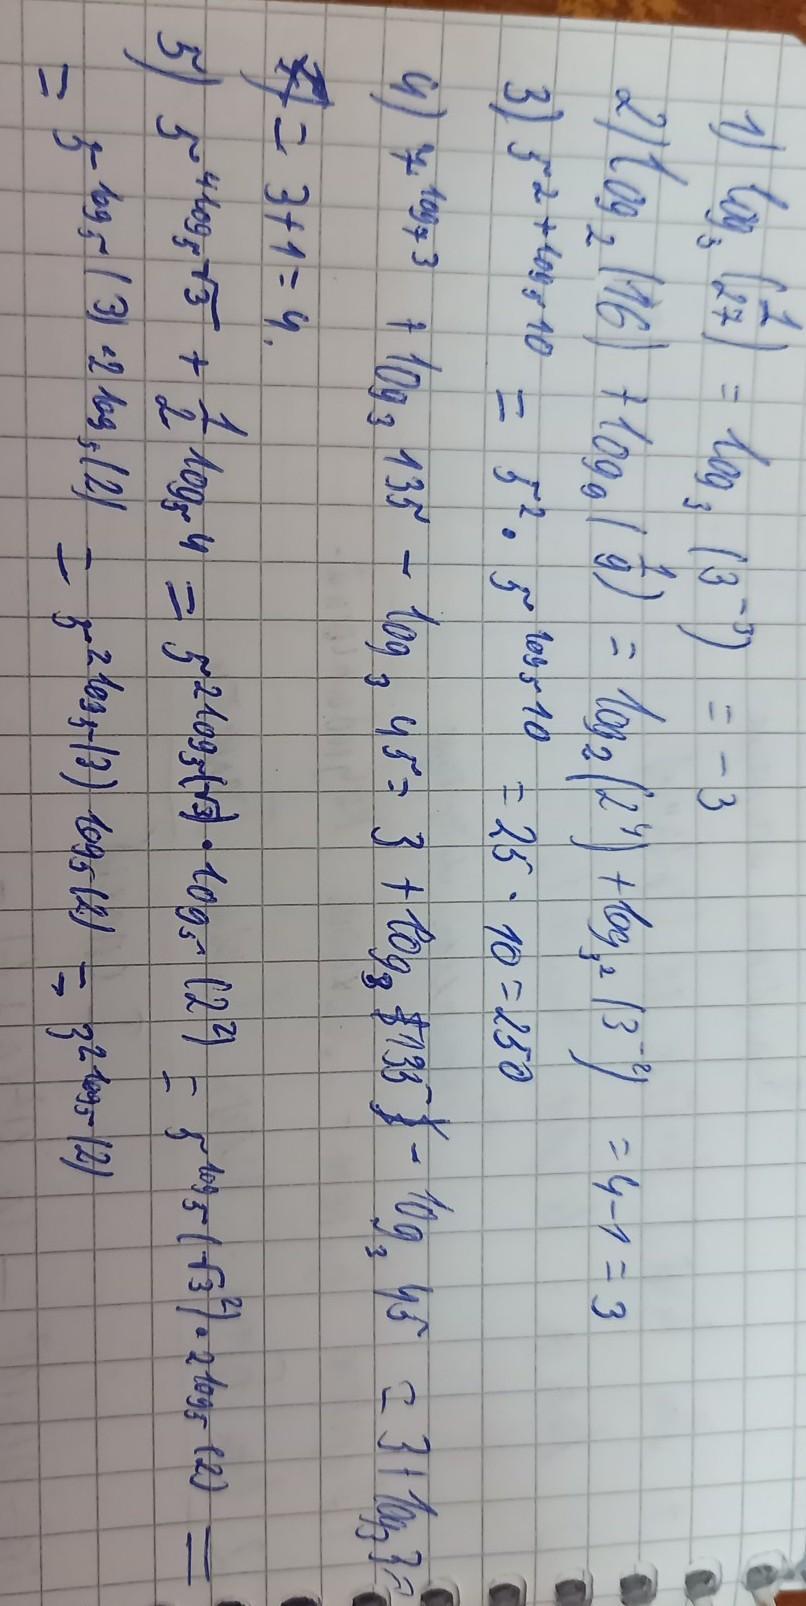 1) log₃ (1/27) = log₃ (3⁻³) = -3
2) log₂ (16) + log₉ (1/9) = log₂ (2⁴) + log₃² (3⁻²) = 4-1 = 3
3) 5^(2+log₅10) = 5² · 5^(log₅10) = 25 · 10 = 250
4) 7^(log₇3) + log₃ 135 - log₃ 45 = 3 + log₃ 135 - log₃ 45 = 3 + log₃ 3 =
= 3+1 = 4.
5) 5^(4log₅√3 + 1/2 log₅4) = 5^(2log₅(√3) · log₅(2²)) = 5^(log₅(√3²) · 2log₅(2)) =
= 5^(log₅(3) · 2log₅(2)) = 5^(2log₅(3) log₅(2)) = 3^(2log₅(2))